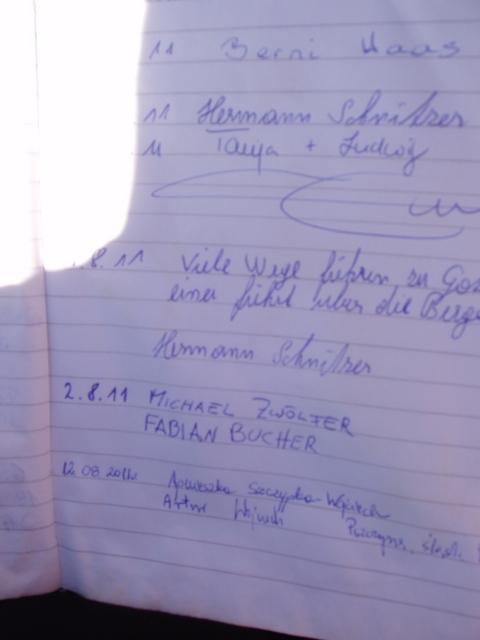 11 Berni Haas
11 Hermann Schnitzer
11 Tanja + Ludwig
.8.11 Viele Wege führen zu
einer führt über die Berge
Hermann Schnitzer
2.8.11 MICHAEL ZWÖLFER
FABIAN BUCHER
12.08.2011r. Agnieszka Szczypka-Wójcik
Artur Wójcik